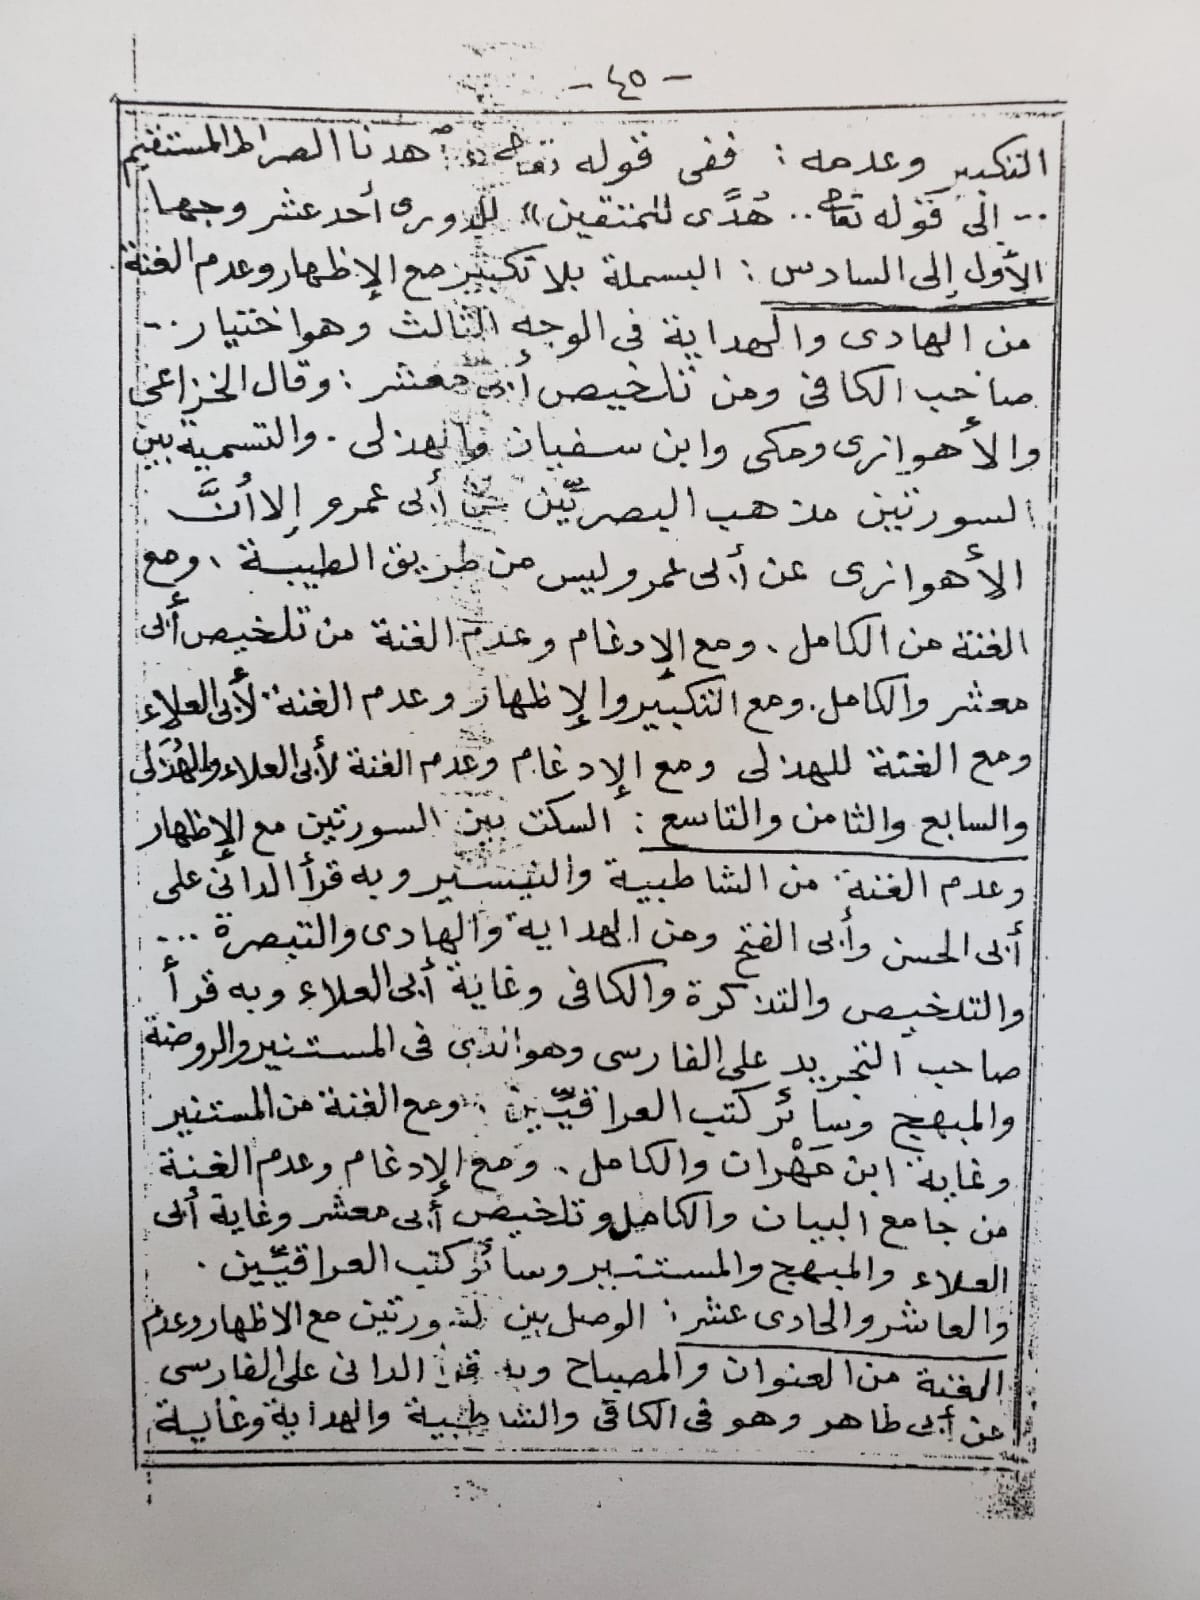 - ٤٥ -
التكبير وعدمه : ففى قوله تعالى « اهدنا الصراط المستقيم
... إلى قوله تعالى .. هُدًى للمتقين » للدورى أحد عشر وجها
الأول إلى السادس : البسملة بلا تكبير مع الإظهار وعدم الغنة
من الهادى والهداية فى الوجه الثالث وهو اختيار ..
صاحب الكافى ومن تلخيص أبى معشر : وقال الخزاعى
والأهوازى ومكى وابن سفيان والهذلى . والتسمية بين
السورتين مذهب البصريِّين عن أبى عمرو إلا أنَّ
الأهوازى عن أبى عمرو ليس من طريق الطيبة ، ومع
الغنة من الكامل ، ومع الإدغام وعدم الغنة من تلخيص أبى
معشر والكامل . ومع التكبير والإظهار وعدم الغنة لأبى العلاء
ومع الغنة للهذلى ومع الإدغام وعدم الغنة لأبى العلاء والهُذَلى
والسابع والثامن والتاسع : السكت بين السورتين مع الإظهار
وعدم الغنة من الشاطبية والتيسير وبه قرأ الدانى على
أبى الحسن وأبى الفتح ومن الهداية والهادى والتبصرة ...
والتلخيص والتذكرة والكافى وغاية أبى العلاء وبه قرأ
صاحب التجريد على الفارسى وهو الذى فى المستنير والروضة
والمبهج وسائر كتب العراقيِّين . ومع الغنة من المستنير
وغاية ابن مَهْران والكامل . ومع الإدغام وعدم الغنة
من جامع البيان والكامل وتلخيص أبى معشر وغاية أبى
العلاء والمبهج والمستنير وسائر كتب العراقيِّين .
والعاشر والحادى عشر : الوصل بين السورتين مع الاظهار وعدم
الغنة من العنوان والمصباح وبه قرأ الدانى على الفارسى
عن أبى طاهر وهو فى الكافى والشاطبية والهداية وغاية